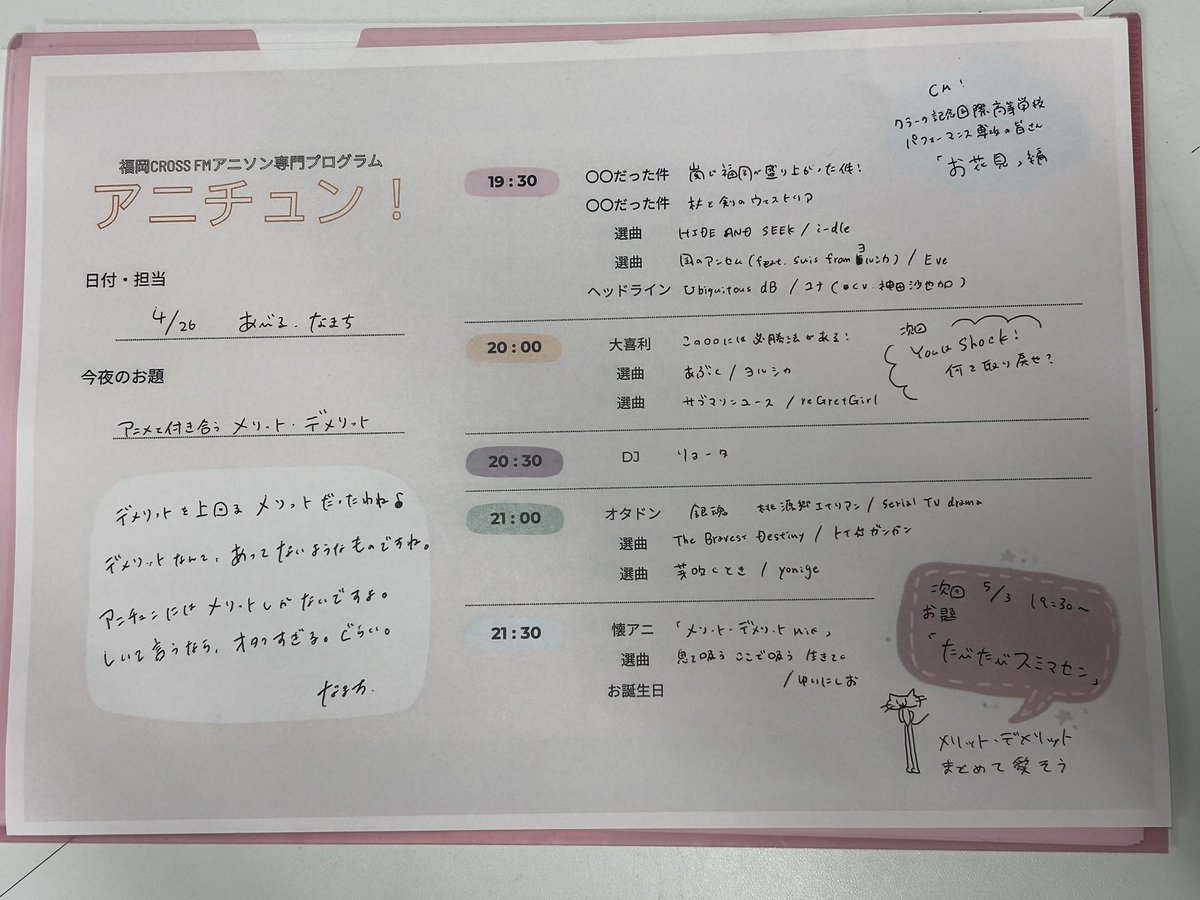 福岡CROSS FMアニソン専門プログラム
アニチュン！
日付・担当
4/26 あべる、なまち
今夜のお題
アニメと付き合う メリット・デメリット
デメリットを上回る メリットだったわね♪
デメリットなんて、あってないようなものですね。
アニチュンにはメリットしかないですよ。
しいて言うなら、オタクすぎる。ぐらい。
なまち.
CM！
クラーク記念国際高等学校
パフォーマンス専攻の皆さん
「お花見」編
19：30
〇〇だった件 嵐で福岡が盛り上がった件！
〇〇だった件 杖と剣のウィストリア
選曲 HIDE AND SEEK / i-dle
選曲 国のアンセム (feat. suis from ヨルシカ) / Eve
ヘッドライン Ubiquitous dB / ユナ (CV.神田沙也加)
20：00
大喜利 この〇〇には必勝法がある！
選曲 あぶく / ヨルシカ
選曲 サブマリンユース / reGretGirl
次回
Youは Shock！
何て取り戻せ？
20：30
DJ リョータ
21：00
オタドン 銀魂 桃源郷エイリアン / serial TV drama
選曲 The Bravest Destiny / トイ的ガンガン
選曲 芽吹くとき / yonige
21：30
懐アニ 「メリット・デメリットmix」
選曲 息て吸う ここで吸う 生きてく
/ ゆいにしお
お誕生日
次回 5/3 19:30〜
お題
「たびたびスミマセン」
メリット・デメリット
まとめて愛そう